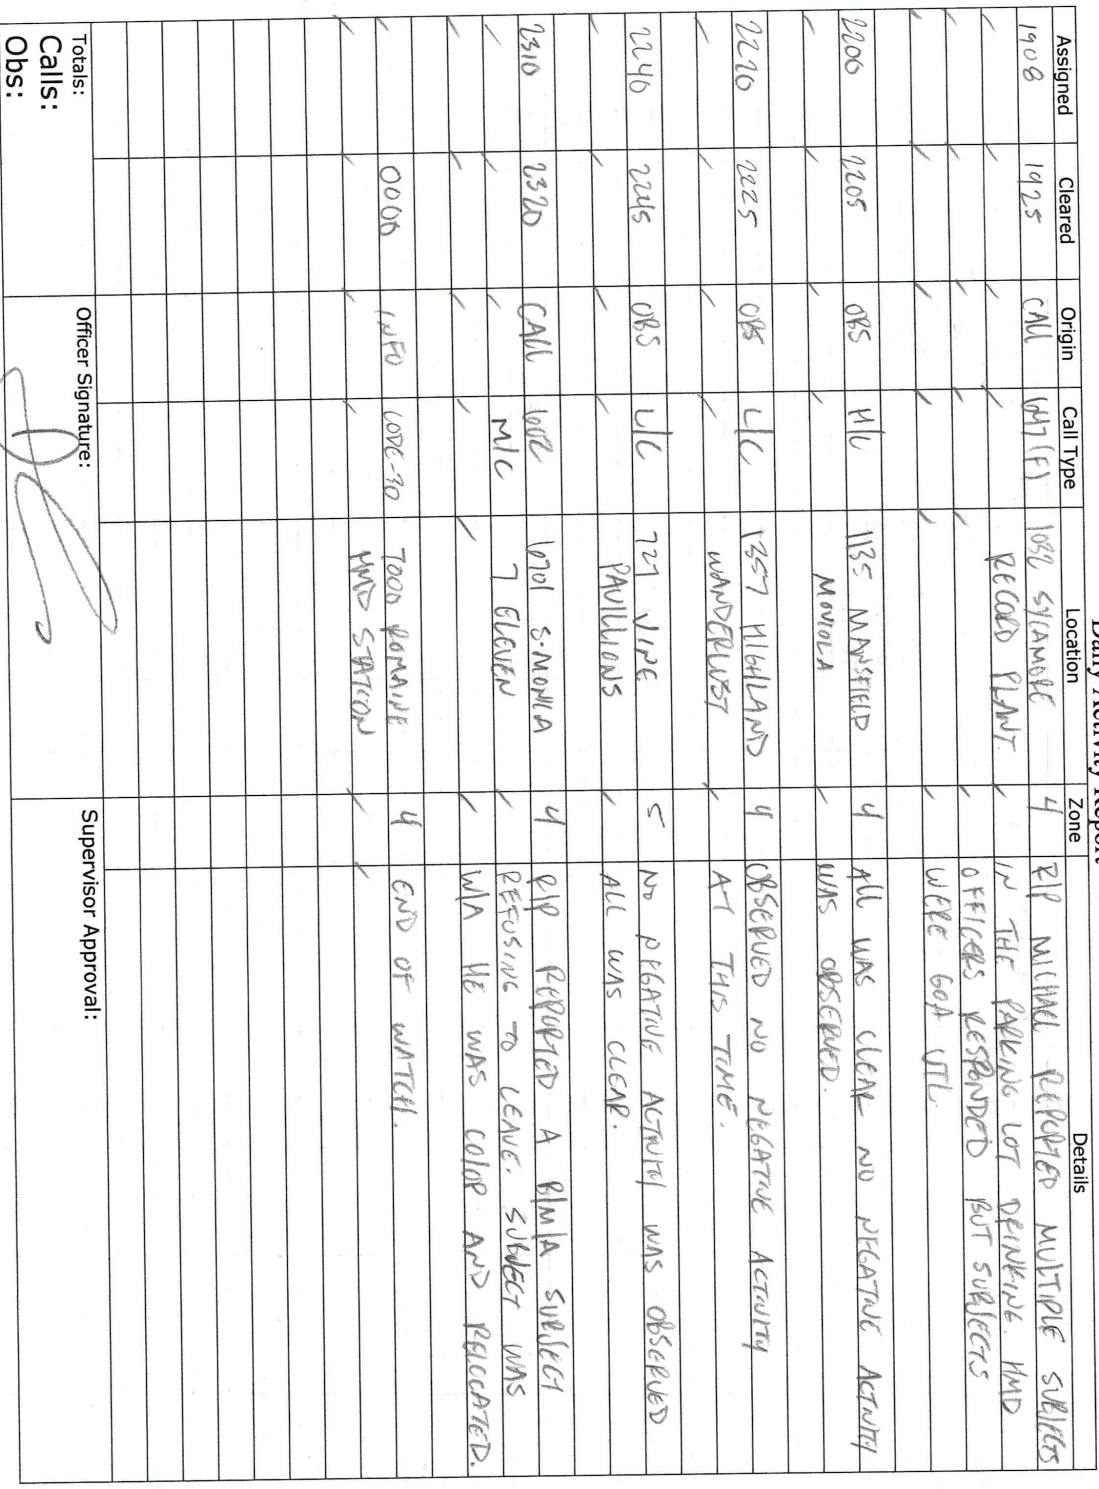 Daily Activity Report
Assigned Cleared Origin Call Type Location Zone Details
1908 1925 CALL 647(F) 1032 SYCAMORE 4 R/P MICHAEL REPORTED MULTIPLE SUBJECTS
RECORD PLANT IN THE PARKING LOT DRINKING. HMD
OFFICERS RESPONDED BUT SUBJECTS
WERE GOA UTL.
2200 2205 OBS H/C 1135 MANSFIELD 4 ALL WAS CLEAR NO NEGATIVE ACTIVITY
MOVIOLA WAS OBSERVED.
2220 2225 OBS L/C 1357 HIGHLAND 4 OBSERVED NO NEGATIVE ACTIVITY
WANDERLUST AT THIS TIME.
2240 2245 OBS L/C 727 VINE 5 NO NEGATIVE ACTIVITY WAS OBSERVED
PAVILLIONS ALL WAS CLEAR.
2310 2320 CALL 602 6701 S. MONICA 4 R/P REPORTED A B/M/A SUBJECT
M/C 7 ELEVEN REFUSING TO LEAVE. SUBJECT WAS
W/A HE WAS COLOP AND RELOCATED.
0000 INFO CODE-30 7000 ROMAINE 4 END OF WATCH.
HMD STATION
Totals:
Calls:
Obs:
Officer Signature:
Supervisor Approval: